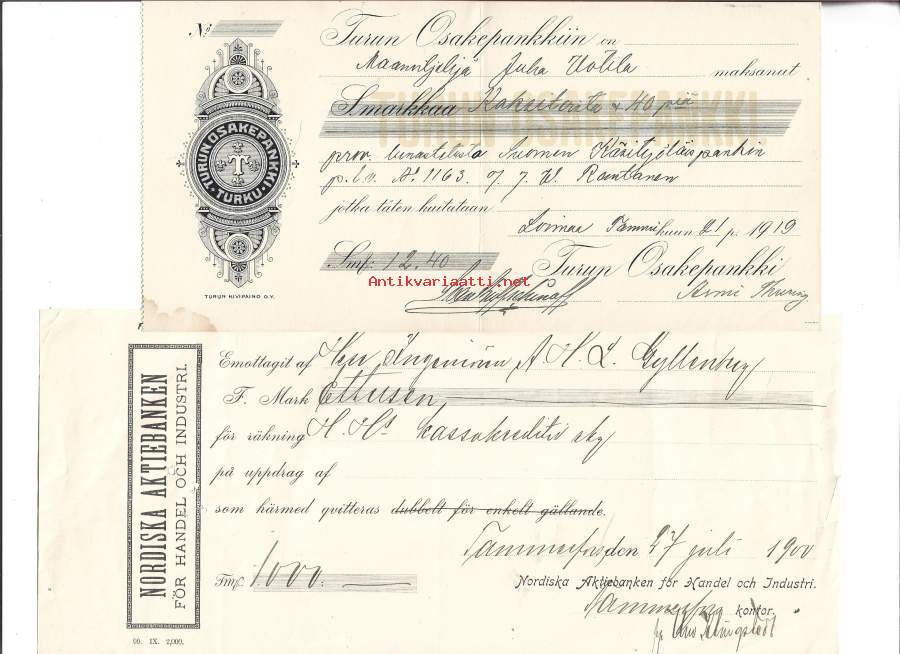 No
Turun Osakepankkiin on
Maanviljelijä Juha Uotila maksanut
Smarkkaa Kaksitoista & 40 piä
TURUN OSAKEPANKKI
prov. lunastetusta Suomen Käsityöläispankin
p.l.v. No 1163. o/. J. W. Rantanen
jotka täten kuitataan
Loimaa Tammikuun 21 p. 1919
Smf. 12.40
Turun Osakepankki
TURUN OSAKEPANKKI
T
TURKU
TURUN KIVIPAINO O.Y.
Antikvariaatti.net
Emottagit af Herr Ingeniören A. H. L. Gyllenberg
F. Mark Ettusen,
för räkning H. Hs Kassakreditiv rkg
på uppdrag af
som härmed qvitteras dubbelt för enkelt gällande.
Tammerfors den 27 juli 1900
Fmf. 1000:
Nordiska Aktiebanken för Handel och Industri.
Tammerfors kontor.
NORDISKA AKTIEBANKEN
FÖR HANDEL OCH INDUSTRI.
00. IX. 2,000.